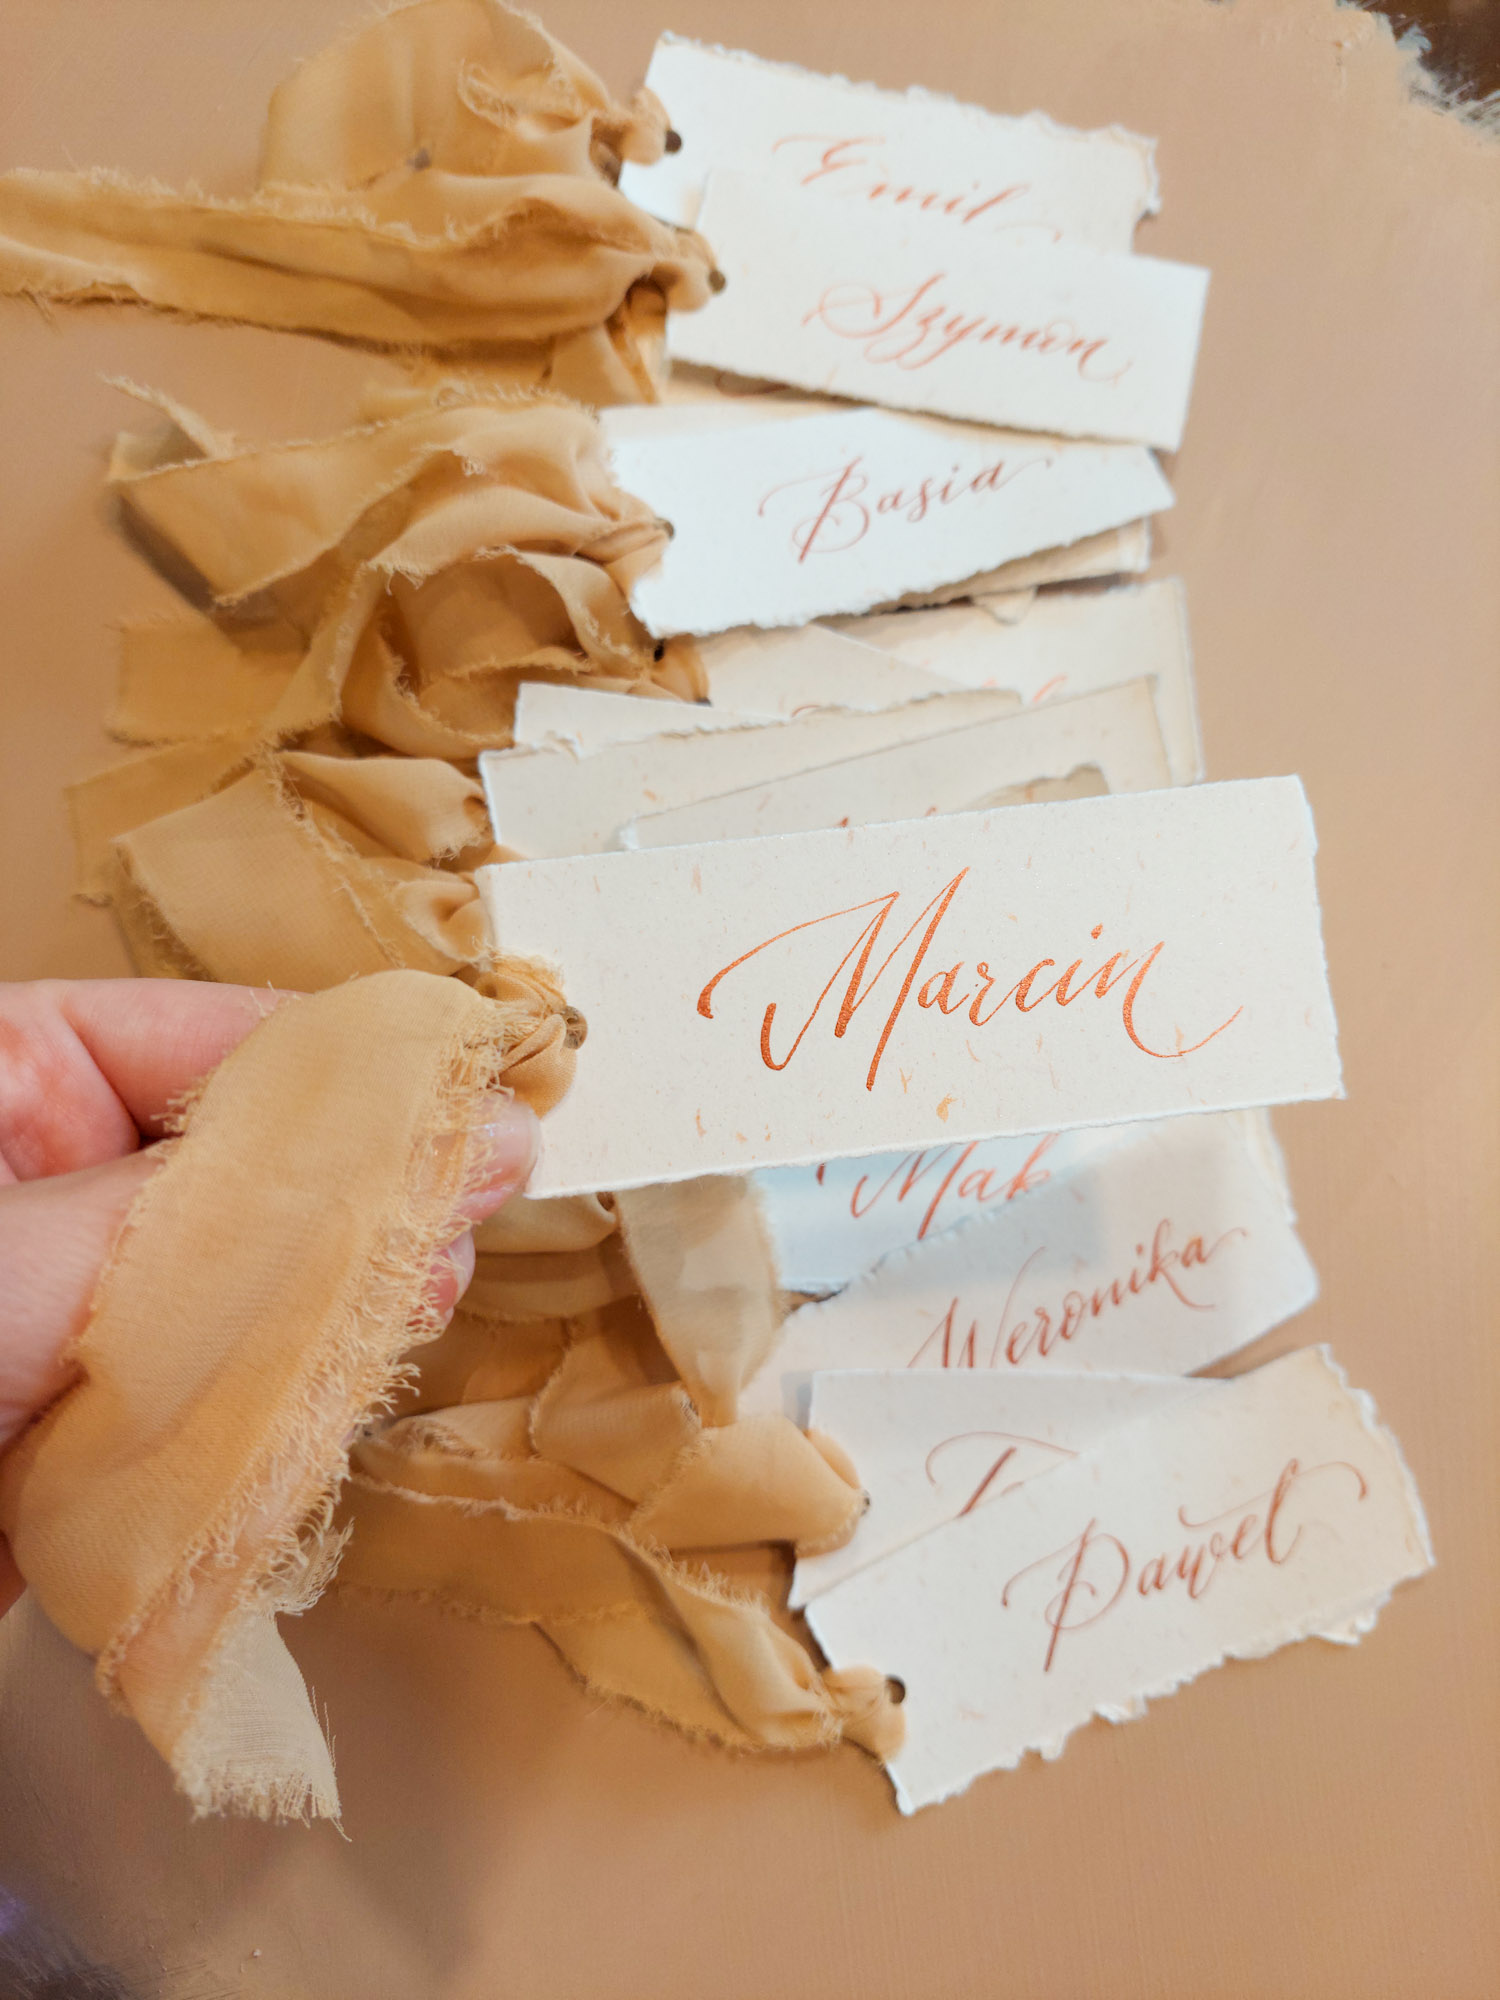 Emil
Szymon
Basia
Marcin
Mak
Weronika
Paweł